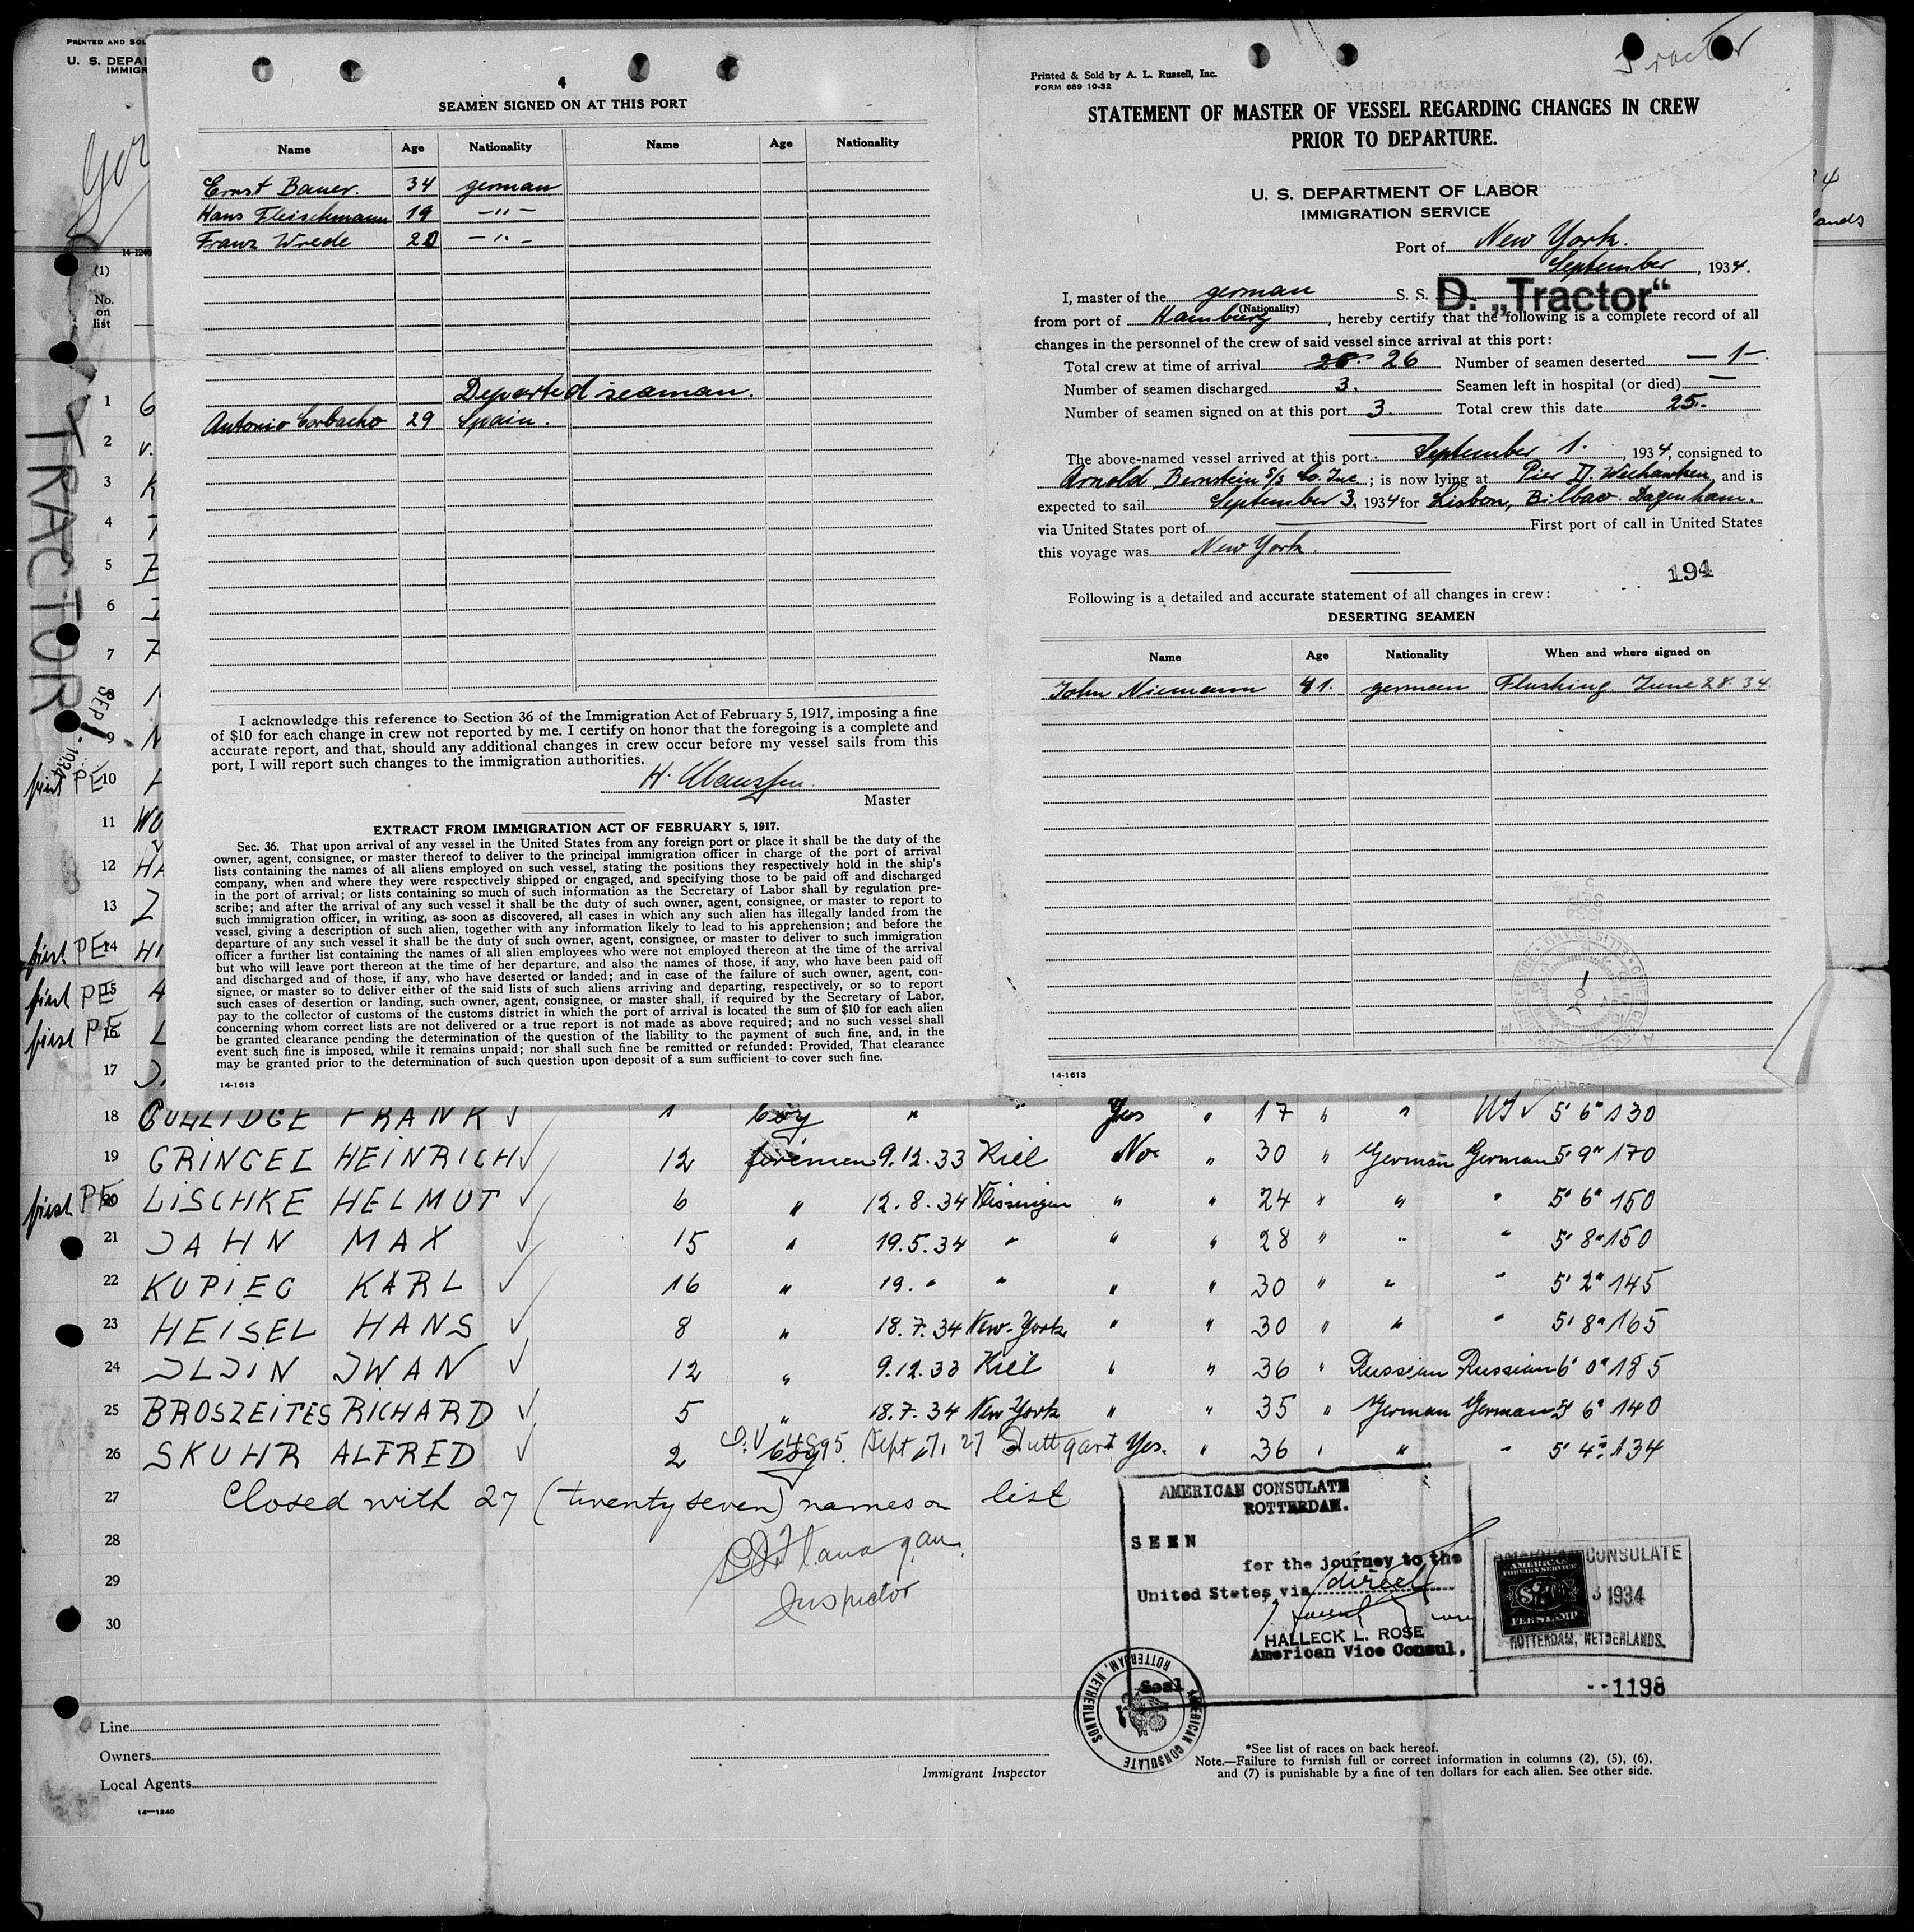 PRINTED AND SOL
U. S. DEPA
IMMIGR
14-1240
(1)
No.
on
list
TRACTOR
SEP 1 1934
4
SEAMEN SIGNED ON AT THIS PORT
Name Age Nationality Name Age Nationality
Ernst Bauer. 34 german
Hans Fleischmann 19 -"-
Franz Wrede 20 -"-
Departed seaman.
Antonio Corbacho 29 Spain.
I acknowledge this reference to Section 36 of the Immigration Act of February 5, 1917, imposing a fine
of $10 for each change in crew not reported by me. I certify on honor that the foregoing is a complete and
accurate report, and that, should any additional changes in crew occur before my vessel sails from this
port, I will report such changes to the immigration authorities.
H.
Master
EXTRACT FROM IMMIGRATION ACT OF FEBRUARY 5, 1917.
Sec. 36. That upon arrival of any vessel in the United States from any foreign port or place it shall be the duty of the
owner, agent, consignee, or master thereof to deliver to the principal immigration officer in charge of the port of arrival
lists containing the names of all aliens employed on such vessel, stating the positions they respectively hold in the ship's
company, when and where they were respectively shipped or engaged, and specifying those to be paid off and discharged
in the port of arrival; or lists containing so much of such information as the Secretary of Labor shall by regulation pre-
scribe; and after the arrival of any such vessel it shall be the duty of such owner, agent, consignee, or master to report to
such immigration officer, in writing, as soon as discovered, all cases in which any such alien has illegally landed from the
vessel, giving a description of such alien, together with any information likely to lead to his apprehension; and before the
departure of any such vessel it shall be the duty of such owner, agent, consignee, or master to deliver to such immigration
officer a further list containing the names of all alien employees who were not employed thereon at the time of the arrival
but who will leave port thereon at the time of her departure, and also the names of those, if any, who have been paid off
and discharged and of those, if any, who have deserted or landed; and in case of the failure of such owner, agent, con-
signee, or master so to deliver either of the said lists of such aliens arriving and departing, respectively, or so to report
such cases of desertion or landing, such owner, agent, consignee, or master shall, if required by the Secretary of Labor,
pay to the collector of customs of the customs district in which the port of arrival is located the sum of $10 for each alien
concerning whom correct lists are not delivered or a true report is not made as above required; and no such vessel shall
be granted clearance pending the determination of the question of the liability to the payment of such fine, and, in the
event such fine is imposed, while it remains unpaid; nor shall such fine be remitted or refunded: Provided, That clearance
may be granted prior to the determination of such question upon deposit of a sum sufficient to cover such fine.
14-1613
Tractor
Printed & Sold by A. L. Russell, Inc.
FORM 689 10-32
STATEMENT OF MASTER OF VESSEL REGARDING CHANGES IN CREW
PRIOR TO DEPARTURE.
U. S. DEPARTMENT OF LABOR
IMMIGRATION SERVICE
Port of New York.
September, 1934.
I, master of the german S. S. D. „Tractor“
(Nationality)
from port of Hamburg, hereby certify that the following is a complete record of all
changes in the personnel of the crew of said vessel since arrival at this port:
Total crew at time of arrival 26 Number of seamen deserted —1—.
Number of seamen discharged 3. Seamen left in hospital (or died) —
Number of seamen signed on at this port 3. Total crew this date 25.
The above-named vessel arrived at this port September 1., 1934, consigned to
Arnold Bernstein S/S Co. Inc; is now lying at Pier II Weehawken, and is
expected to sail September 3, 1934 for Lisbon, Bilbao. Dagenham.
via United States port of First port of call in United States
this voyage was New York.
194
Following is a detailed and accurate statement of all changes in crew:
DESERTING SEAMEN
Name Age Nationality When and where signed on
John Niemann 41. german Flushing. June 28. 34
14-1613
lands
1 6
2 v.
3 K
4 T
5
6
7
8
9 N
first PE 10
11 WO
12 HA
13 Z
first PE 14 HI
first PE 15
first PE 16 L
17
18 GULLIDGE FRANK ✓ 1 boy " " Yes " 17 " " ✓ 5' 6" 130
19 GRINGEL HEINRICH ✓ 12 firemen 9.12.33 Kiel No " 30 " German German 5' 9" 170
first PE 20 LISCHKE HELMUT ✓ 6 " 12.8.34 Vlissingen " " 24 " " " 5' 6" 150
21 JAHN MAX ✓ 15 " 19.5.34 " " " 28 " " " 5' 8" 150
22 KUPIEC KARL ✓ 16 " 19. " " " " 30 " " " 5' 2" 145
23 HEISEL HANS ✓ 8 " 18.7.34 New-York " " 30 " " " 5' 8" 165
24 ILJIN IWAN ✓ 12 " 9.12.33 Kiel " " 36 " Russian Russian 6' 0" 185
25 BROSZEITES RICHARD ✓ 5 " 18.7.34 New York " " 35 " German German 5' 6" 140
26 SKUHR ALFRED ✓ 2 boy Sept 17, 27 Stuttgart Yes. " 36 " " " 5' 4" 134
27 Closed with 27 (twenty seven) names on list
28 Flanagan
29 Inspector
30
AMERICAN CONSULATE
ROTTERDAM.
SEEN
for the journey to the
United States via direct
HALLECK L. ROSE
American Vice Consul.
Seal
AMERICAN CONSULATE ROTTERDAM, NETHERLANDS
CONSULATE
AMERICAN
FOREIGN SERVICE
FEE STAMP
1934
ROTTERDAM, NETHERLANDS.
--1198
Line
Owners
Local Agents
14—1240
Immigrant Inspector
*See list of races on back hereof.
Note.—Failure to furnish full or correct information in columns (2), (5), (6),
and (7) is punishable by a fine of ten dollars for each alien. See other side.